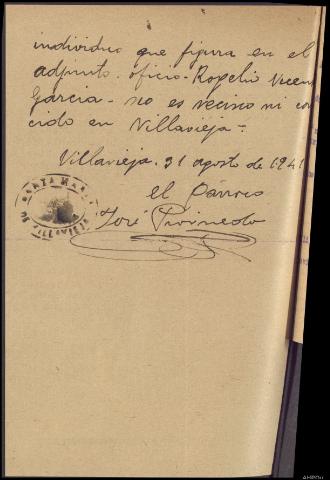 individuo que figura en el
adjunto oficio - Rogelio Vicen
Garcia - no es vecino ni cono
cido en Villavieja -.
Villavieja, 31 agosto de 1941
el Parroco
José
SANTA MARIA
DE VILLAVIEJA